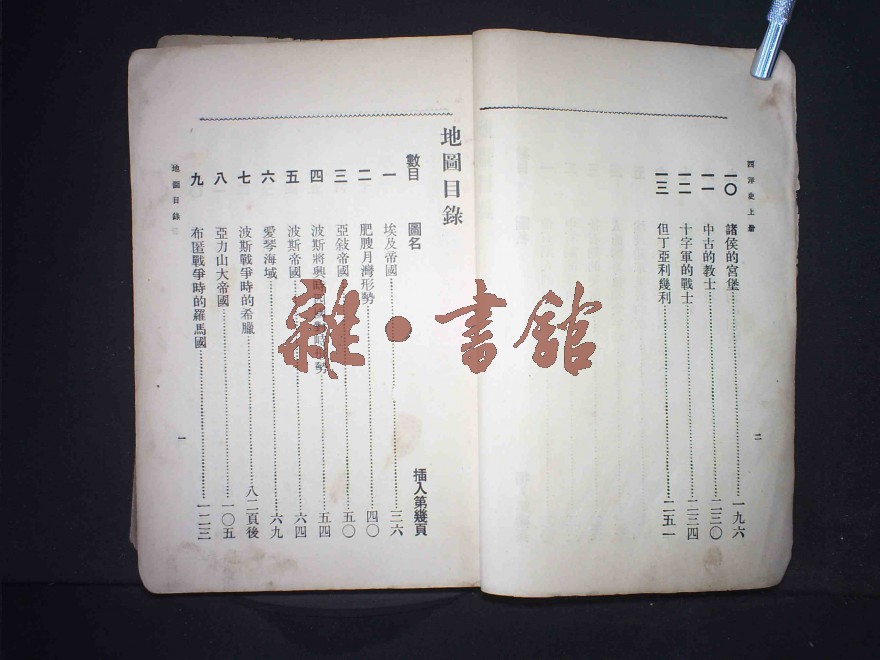 西洋史上册
一〇 諸侯的宮堡 一九六
一一 中古的教士 二三〇
一二 十字軍的戰士 二三四
一三 但丁亞利幾利 二五一
二
地圖目錄
數目 圖名 插入第幾頁
一 埃及帝國 三六
二 肥腴月灣形勢 四〇
三 亞敍帝國 五〇
四 波斯將興時 勢 五四
五 波斯帝國 六四
六 愛琴海域 六九
七 波斯戰爭時的希臘 八二頁後
八 亞力山大帝國 一〇五
九 布匿戰爭時的羅馬國 一二三
地圖目錄
一
雜·書館